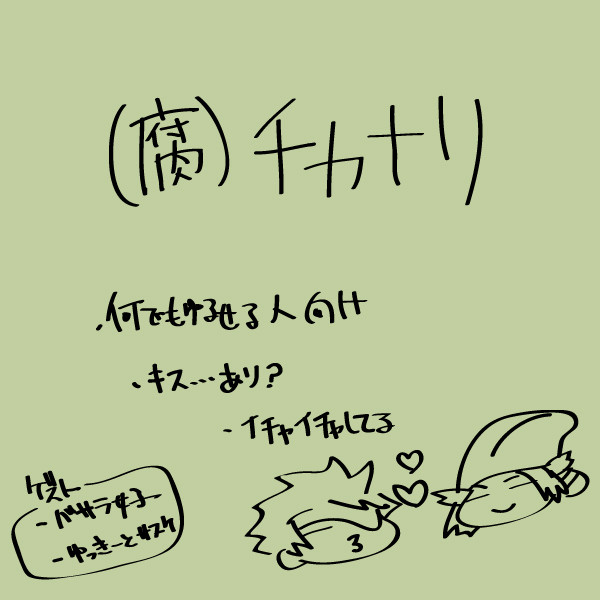 (腐)チカナリ
・何でもゆるせる人向け
・キス…あり?
・イチャイチャしてる
ゲスト
-バサラ女子
-ゆっきーとサスケ